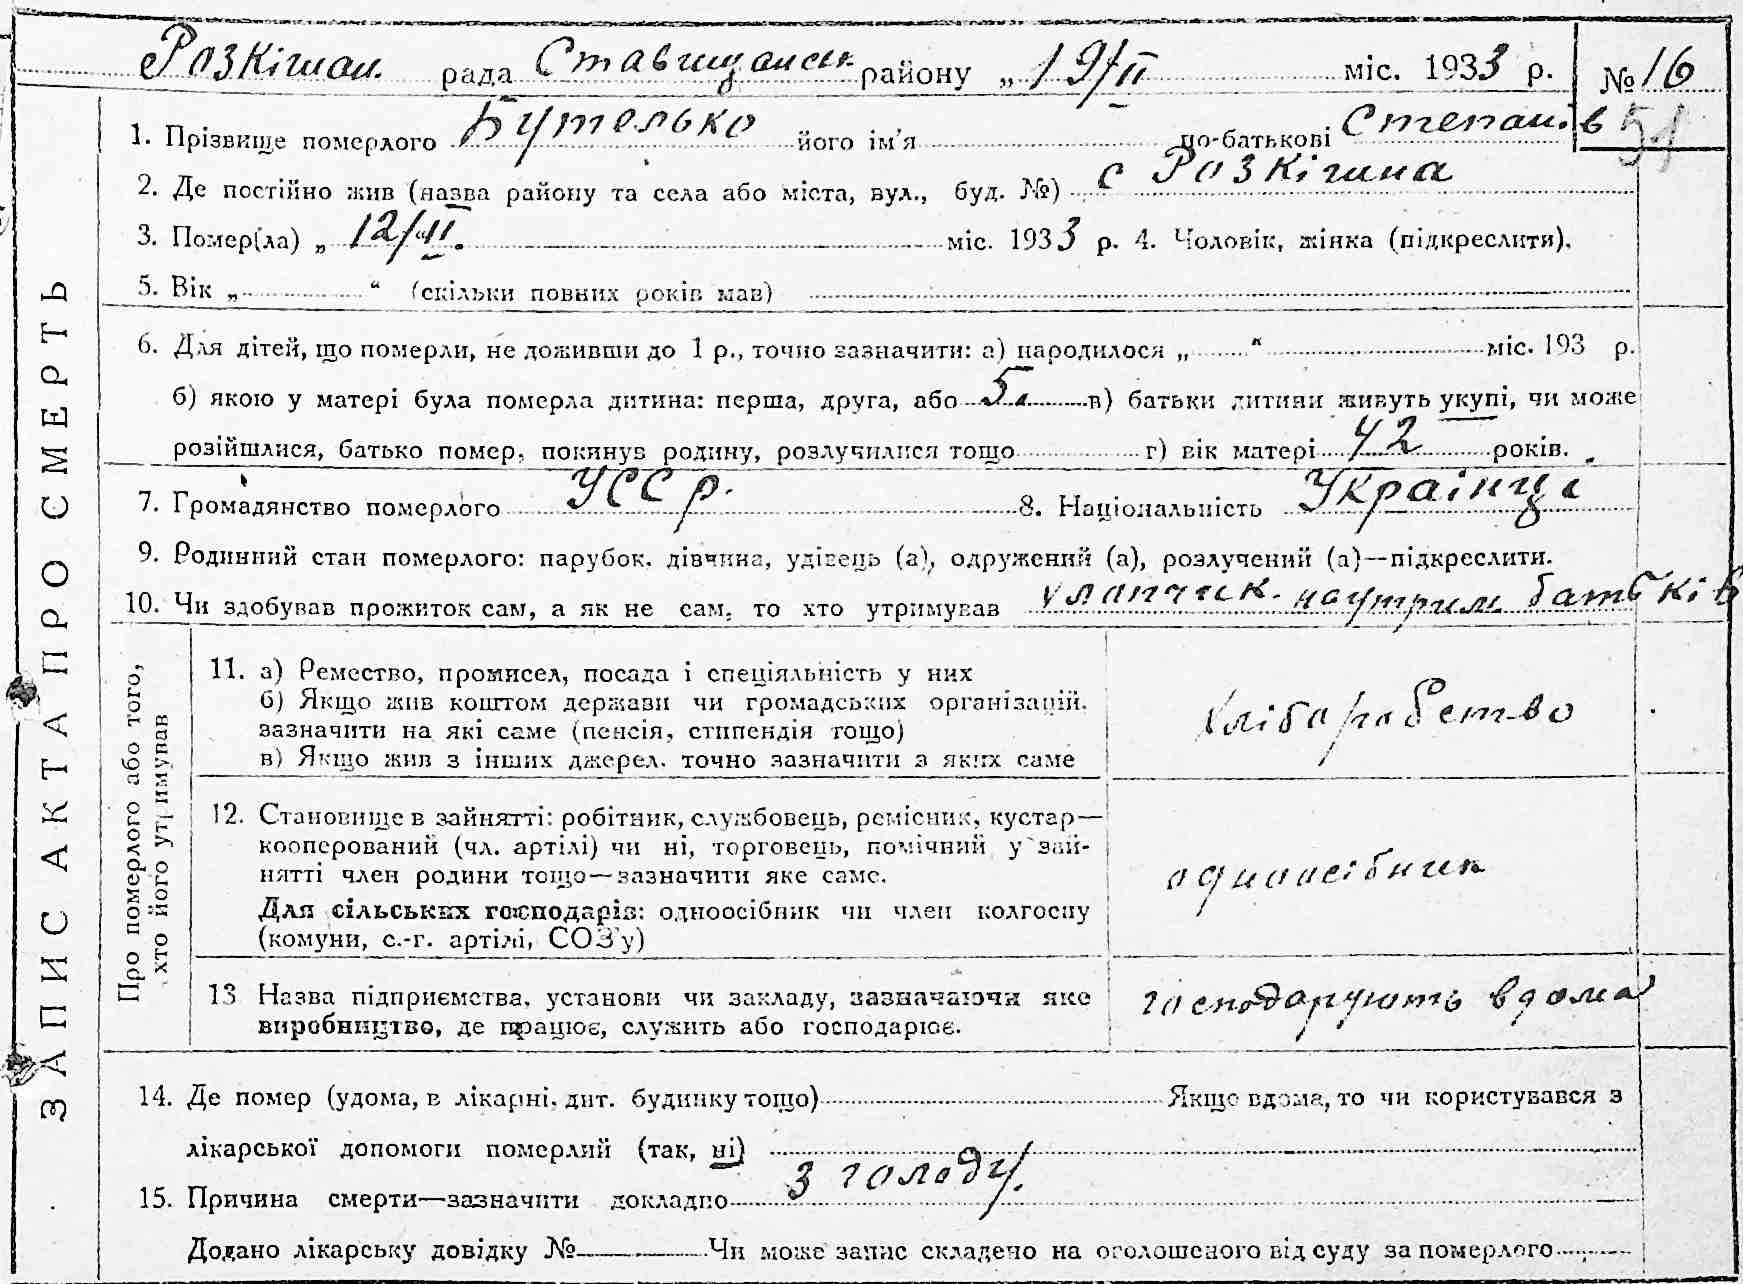 Розкішан. рада Ставищанськ району „ 19/II міс. 1933 р. № 16
1. Прізвище померлого Бутелько його ім'я по-батькові Степанів 51
2. Де постійно жив (назва району та села або міста, вул., буд. №) с Розкішна
3. Помер(ла) „ 12/II. міс. 1933 р. 4. Чоловік, жінка (підкреслити).
5. Вік „ “ (скільки повних років мав)
6. Для дітей, що померли, не доживши до 1 р., точно зазначити: а) народилося „ “ міс. 193 р.
б) якою у матері була померла дитина: перша, друга, або 5. в) батьки дитини живуть укупі, чи може
розійшлися, батько помер, покинув родину, розлучилися тощо г) вік матері 42 років.
7. Громадянство померлого УССР. 8. Національність Українці
9. Родинний стан померлого: парубок, дівчина, удівець (а), одружений (а), розлучений (а)—підкреслити.
10. Чи здобував прожиток сам, а як не сам, то хто утримував хлопчик. на утрим батьків
ЗАПИС АКТА ПРО СМЕРТЬ
Про померлого або того,
хто його утримував
11. а) Ремество, промисел, посада і спеціяльність у них
б) Якщо жив коштом держави чи громадських організацій,
зазначити на які саме (пенсія, стипендія тощо)
в) Якщо жив з інших джерел, точно зазначити з яких саме
хліборобство
12. Становище в зайнятті: робітник, службовець, ремісник, кустар—
кооперований (чл. артілі) чи ні, торговець, помічний у зай-
нятті член родини тощо—зазначити яке саме.
Для сільських господарів: одноосібник чи член колгоспу
(комуни, с.-г. артілі, СОЗ'у)
одноосібник
13 Назва підприємства, установи чи закладу, зазначаючи яке
виробництво, де працює, служить або господарює.
господарують вдома
14. Де помер (удома, в лікарні, дит. будинку тощо) Якщо вдома, то чи користувався з
лікарської допомоги померлий (так, ні)
15. Причина смерти—зазначити докладно з голоду.
Додано лікарську довідку № Чи може запис складено на оголошеного від суду за померлого